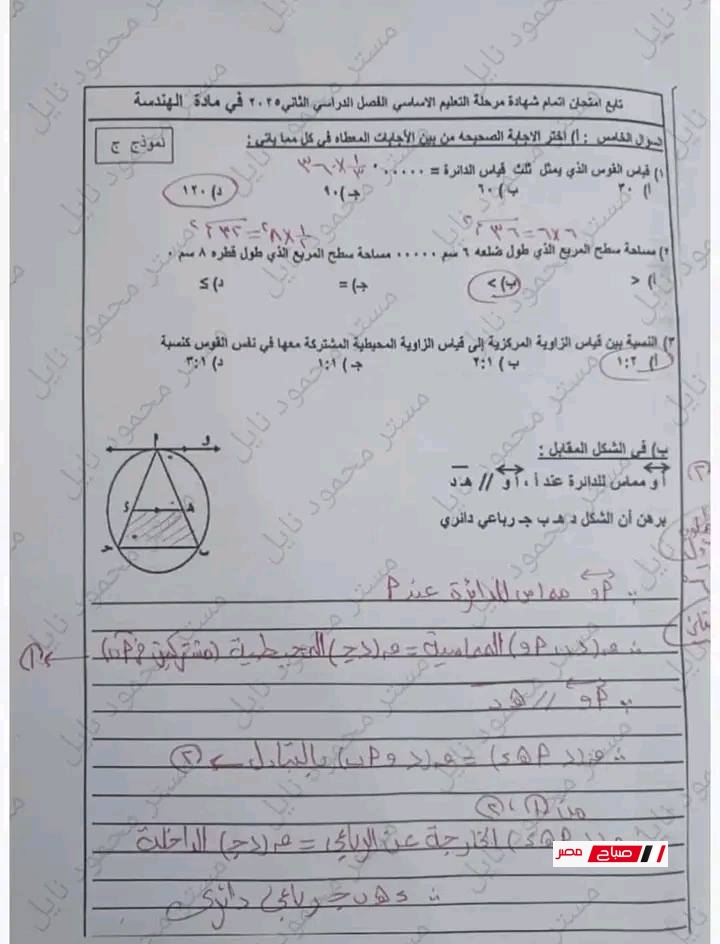 تابع امتحان اتمام شهادة مرحلة التعليم الاساسي الفصل الدراسي الثاني ٢٠٢٥ في مادة الهندسة
نموذج ج
السؤال الخامس : أ) اختر الاجابة الصحيحه من بين الأجابات المعطاه في كل مما يأتي :
١/٣ × ٣٦٠
١) قياس القوس الذي يمثل ثلث قياس الدائرة = ......°
أ) ٣٠ ب) ٦٠ جـ) ٩٠ د) ١٢٠
٦×٦ = ٣٦ سم٢ ١/٢ × ٨٢ = ٣٢ سم٢
٢) مساحة سطح المربع الذي طول ضلعه ٦ سم ..... مساحة سطح المربع الذي طول قطره ٨ سم .
أ) < ب) > جـ) = د) ≤
٣) النسبة بين قياس الزاوية المركزية إلى قياس الزاوية المحيطية المشتركة معها في نفس القوس كنسبة
أ) ١:٢ ب) ٢:١ جـ) ١:١ د) ٣:١
ب) في الشكل المقابل :
أو مماس للدائرة عند أ ، أو // هـ د
برهن أن الشكل د هـ ب جـ رباعي دائري
و أ
د هـ
جـ ب
∵ أو مماس للدائرة عند أ
∴ ق(د ب أ و) المماسية = ق(د جـ) المحيطية (مشتركين في أب) ← ①
∵ أو // هـ د
∴ ق(د أ هـ د) = ق(د و أ ب) بالتبادل ← ②
من ① ، ②
الخارجة عن الرباعي = ق(د جـ) الداخلة
∴ د هـ ب جـ رباعي دائري
صباح مصر
مستر محمود نايل